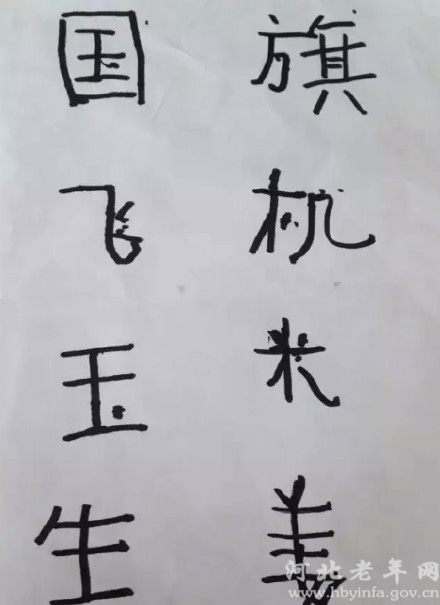 国旗
飞机
玉米
生姜
河北老年网
www.hbyinfa.gov.cn